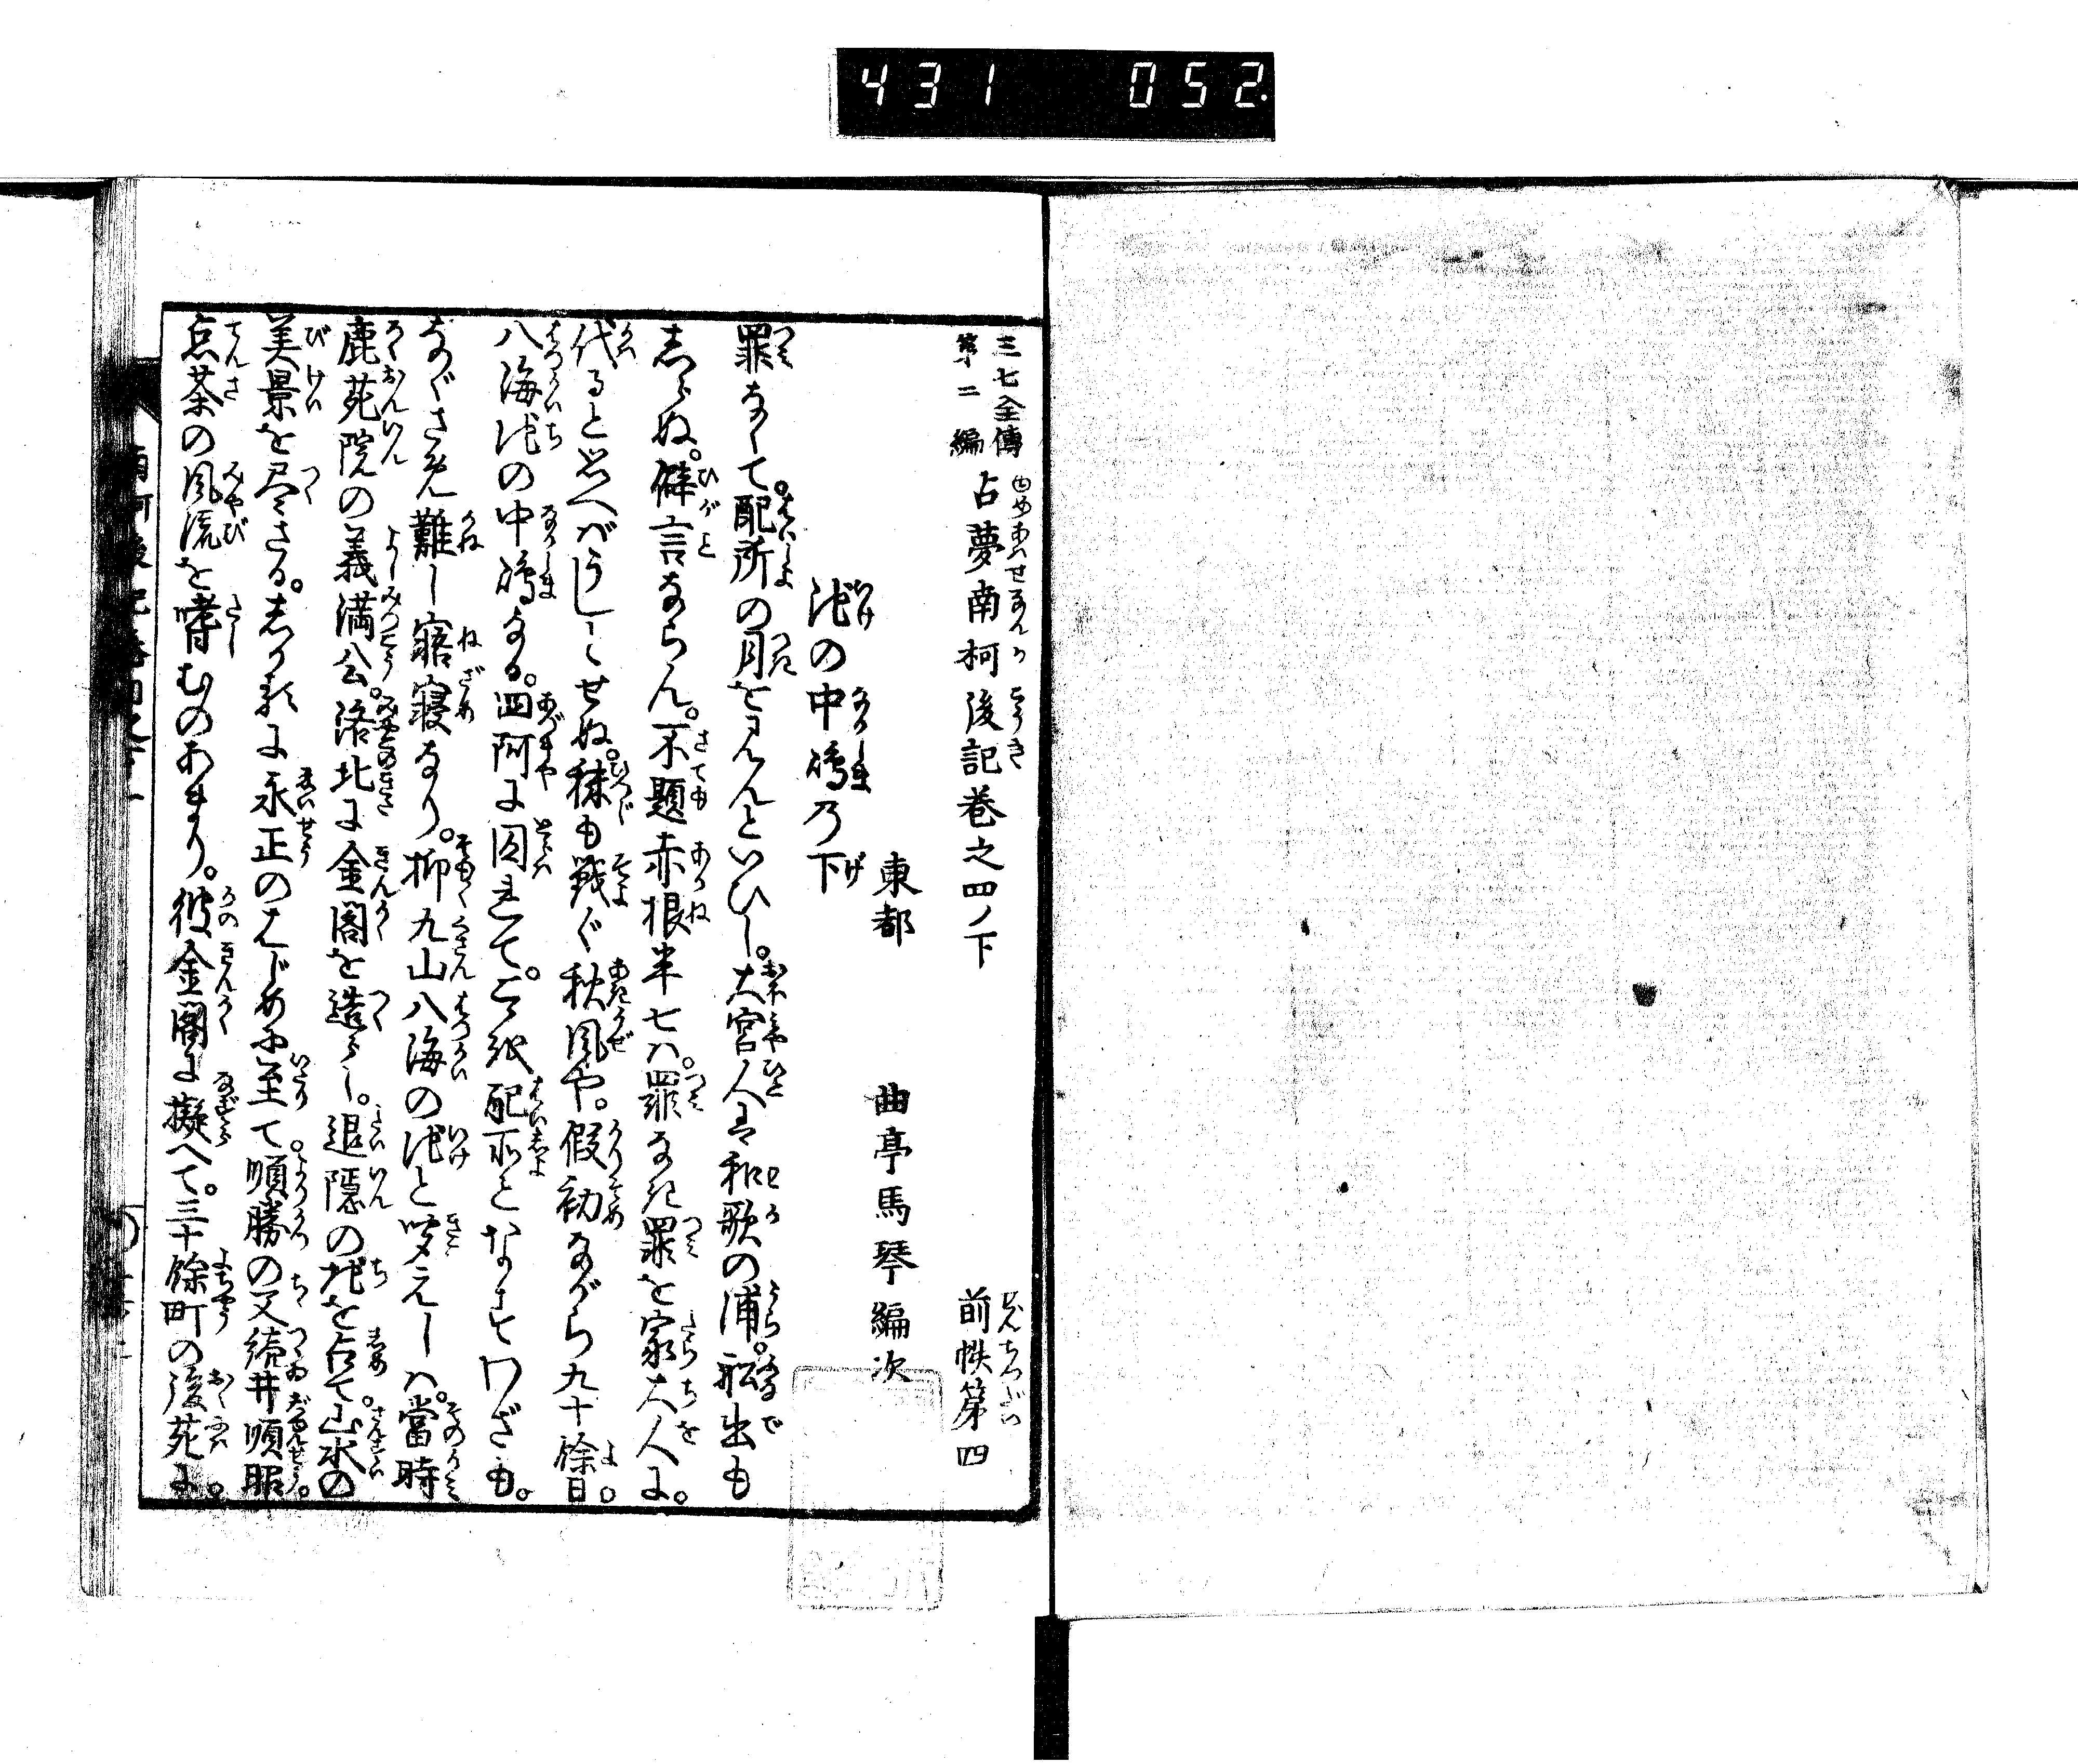 431 052.
三七全傳
第二編
占夢南柯後記巻之四ノ下
前帙第四
東都 曲亭馬琴編次
池の中嶋乃下
罪なくて配所の月を見んといひし。大宮人は和歌の浦。舩出も
しらぬ。僻言ならん。不題赤根半七ハ。罪なき罪を家大人に。
代ると思へばうしとせぬ。穭も戦ぐ秋風や。假初ながら九十餘日。
八海池の中嶋なる。四阿に囚れて。こを配所となすわざも。
なぐさめ難し寤寝なり。抑九山八海の池と聞えしハ。當時
鹿苑院の義満公。洛北に金閣を造らし。退隠の地を占て。山水の
美景を尽さる。しかるに永正のはじめに至て。順勝の父續井順昭。
点茶の風流を嗜むのあまり。彼金閣に擬へて。三十餘町の後苑に。